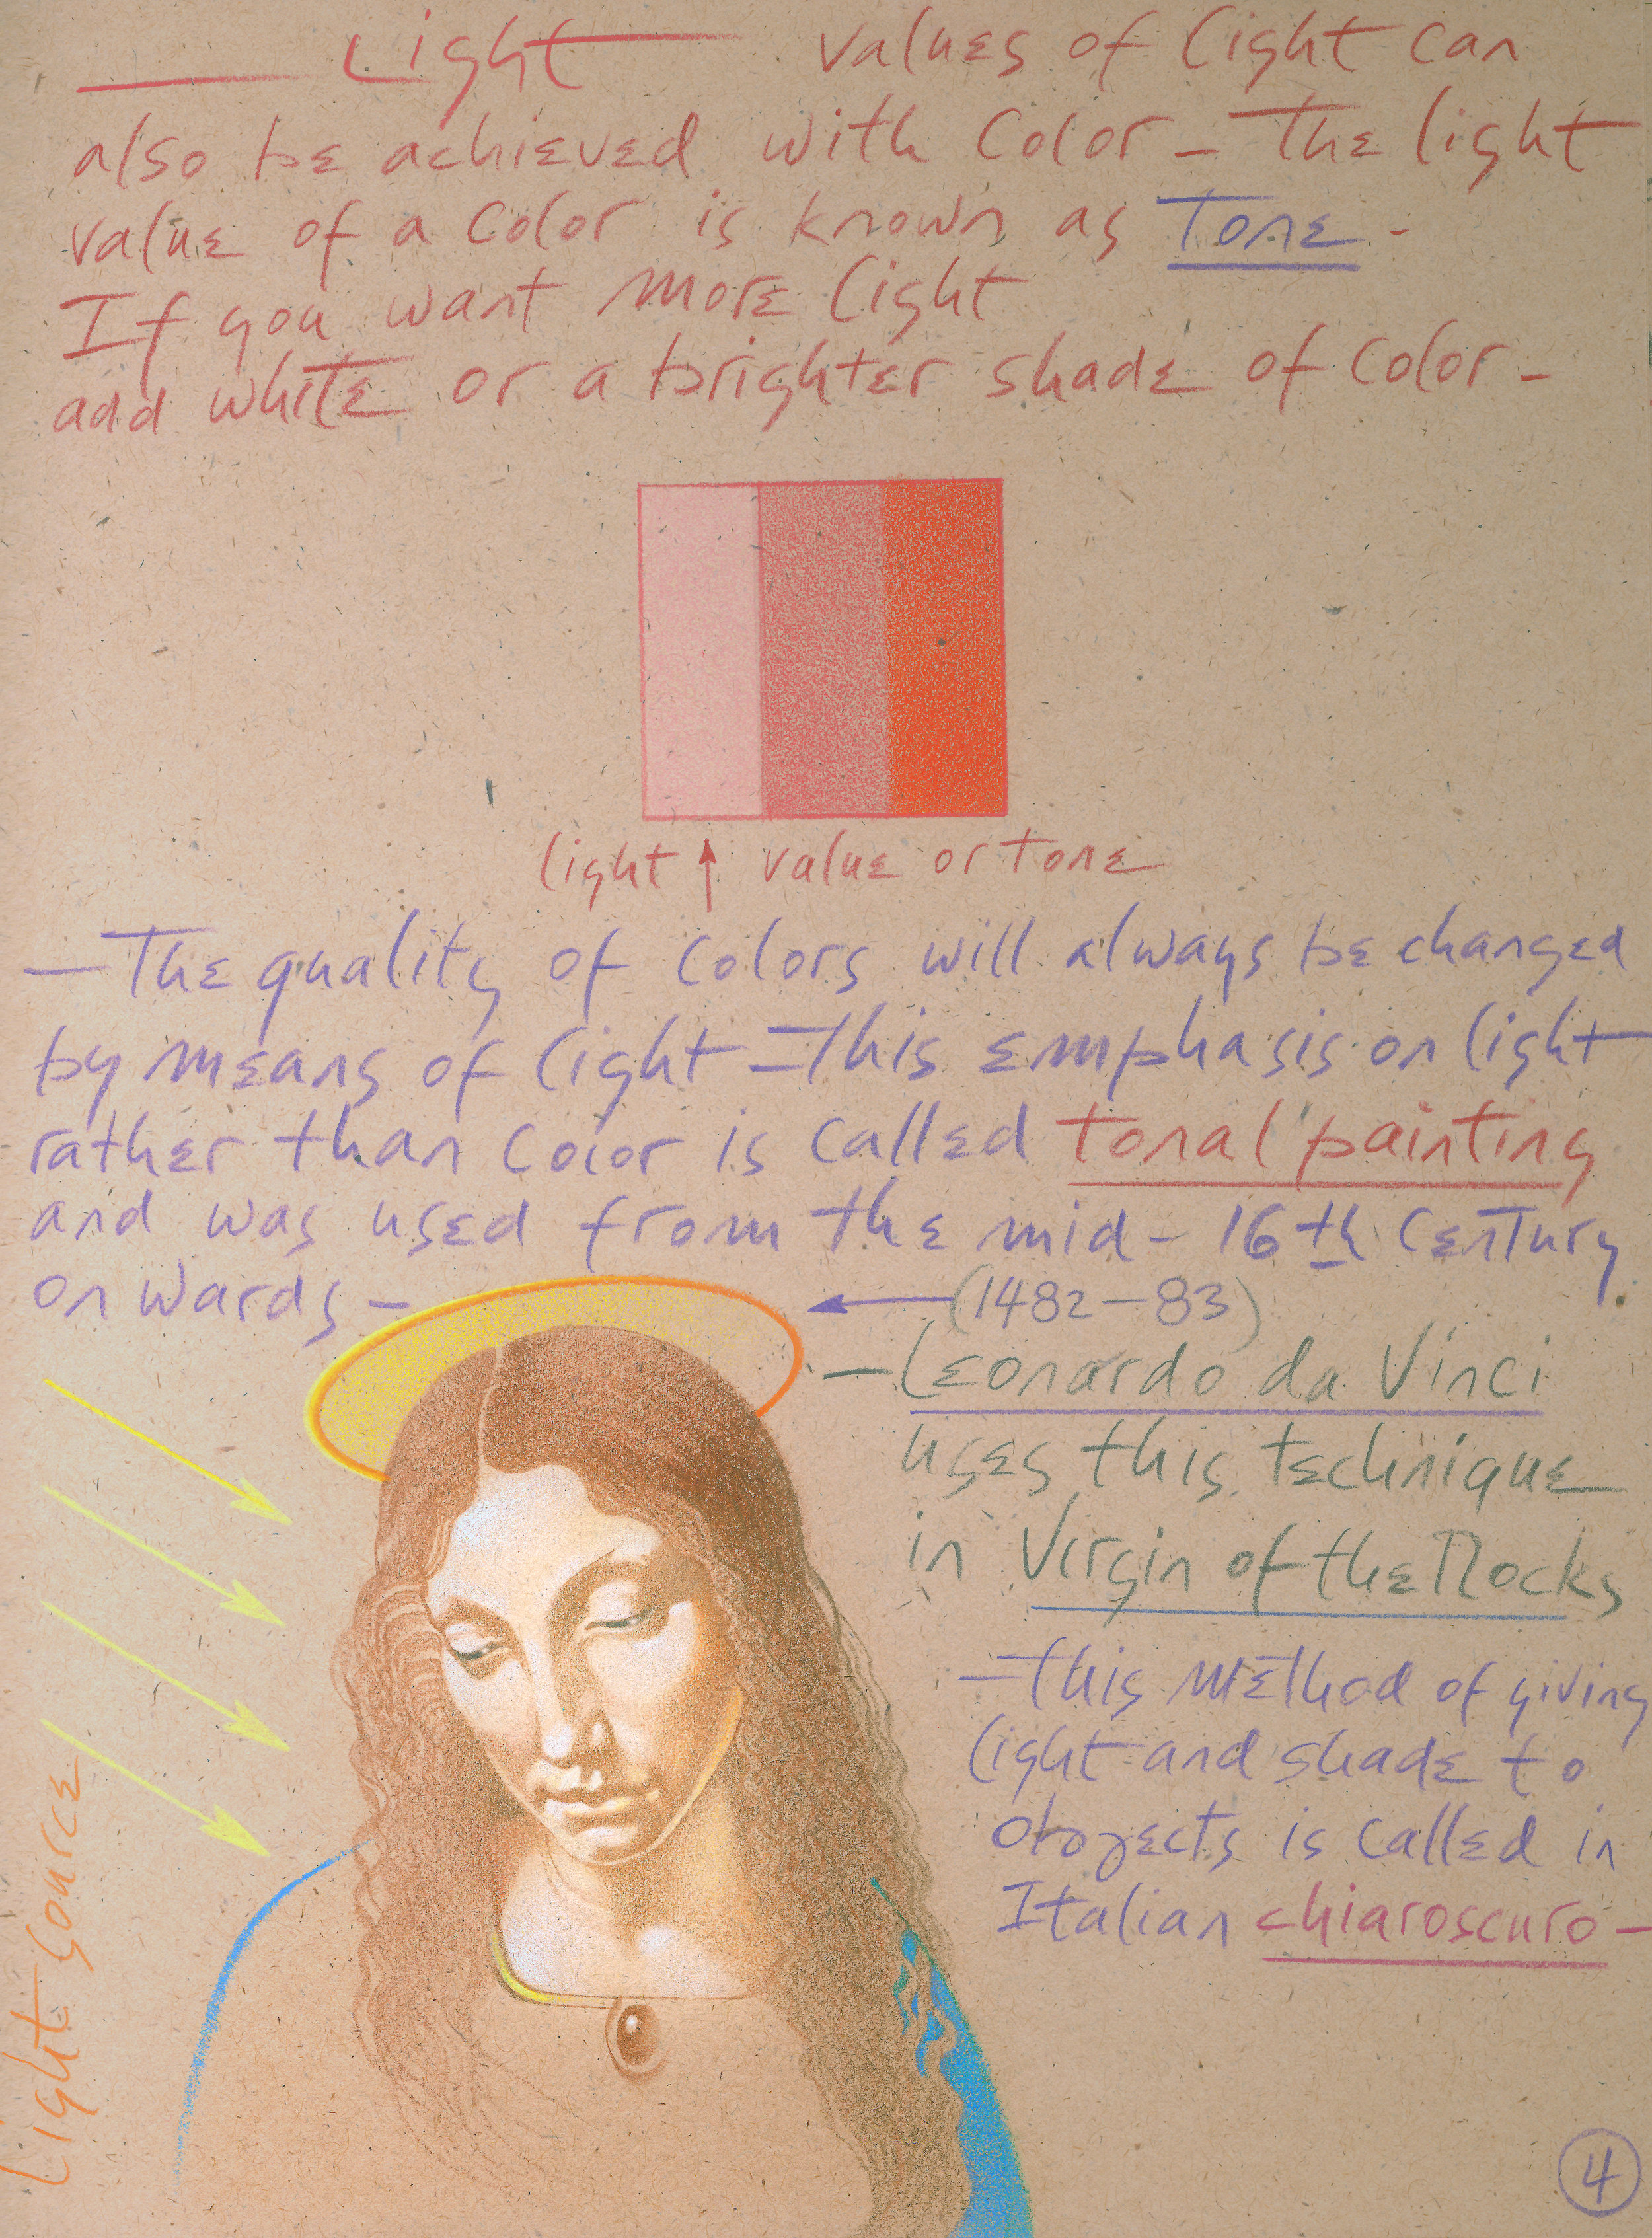 Light values of light can
also be achieved with color - The light
value of a color is known as Tone -
If you want more light
add white or a brighter shade of color -
light ↑ value or tone
- The quality of colors will always be changed
by means of light - This emphasis on light
rather than color is called tonal painting
and was used from the mid-16th Century
onwards -
(1482-83)
- Leonardo da Vinci
uses this technique
in Virgin of the Rocks
- This method of giving
light and shade to
objects is called in
Italian chiaroscuro -
Light source
4